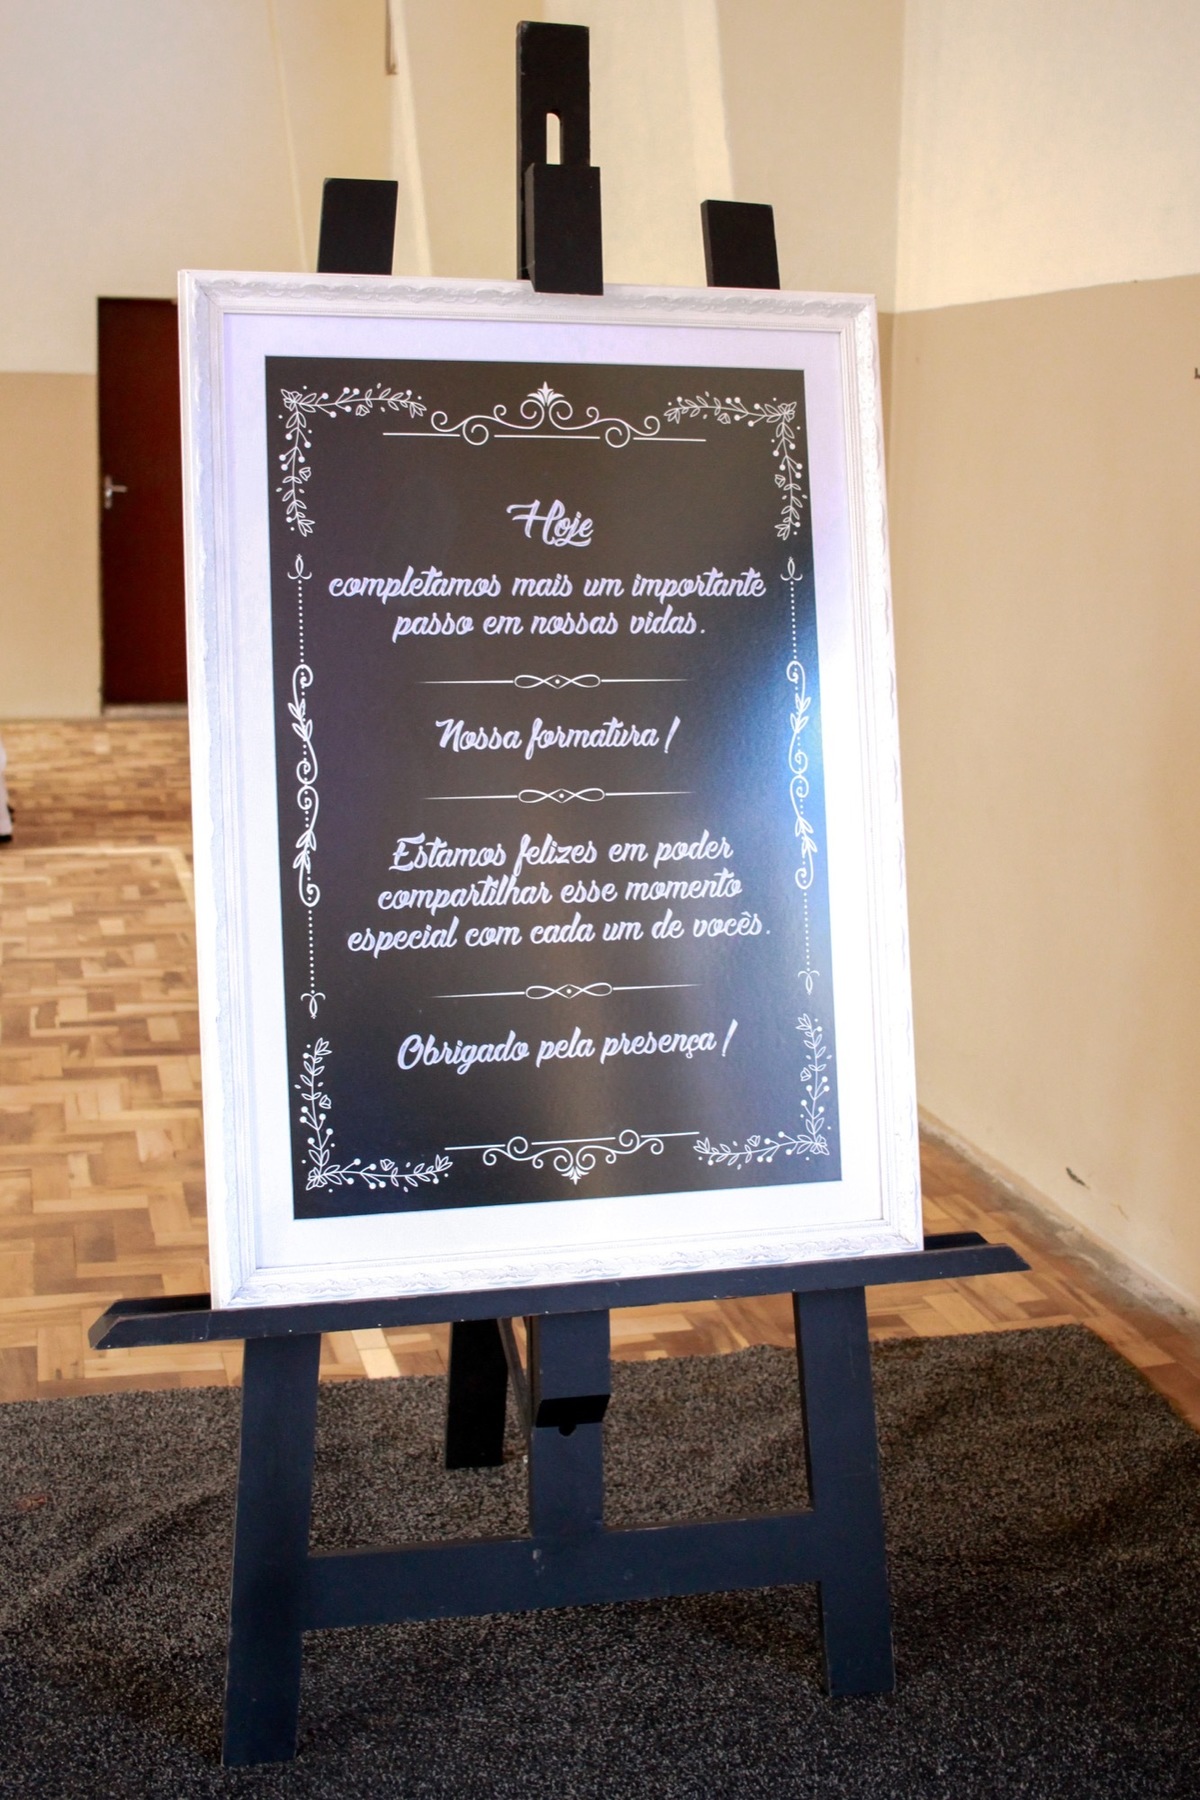 Hoje
completamos mais um importante
passo em nossas vidas.
Nossa formatura!
Estamos felizes em poder
compartilhar esse momento
especial com cada um de vocês.
Obrigado pela presença!